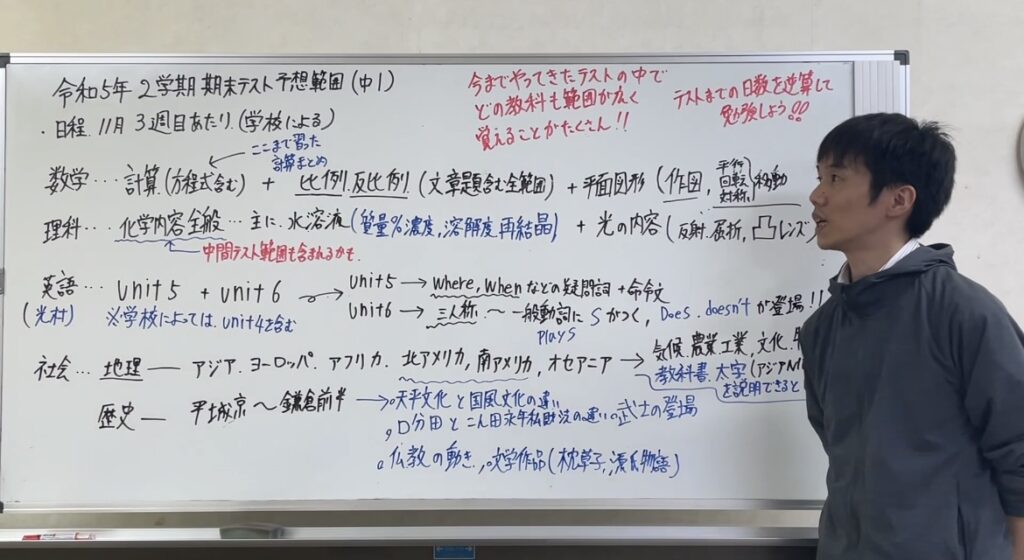 令和5年 2学期 期末テスト予想範囲 (中1)
・日程.11月 3週目あたり.(学校による)
今までやってきたテストの中で
どの教科も範囲が広く
覚えることがたくさん!!
テストまでの日数を逆算して
勉強しよう!!
ここまで習った
計算まとめ
数学… 計算.(方程式含む) + 比例.反比例.(文章題含む全範囲) + 平面図形 (作図, 平行 回転 対称) 移動
理科… 化学内容全般 … 主に.水溶液 (質量%濃度,溶解度.再結晶) + 光の内容 (反射.屈折,凸レンズ)
中間テスト範囲も含まれるかも.
英語… unit5 + unit6
(光村) ※学校によっては.unit4を含む
unit5 → where,whenなどの疑問詞 +命令文
unit6 → 三人称.〜 一般動詞に Sがつく, Does.doesn'tが登場!!
plays
社会… 地理 ― アジア.ヨーロッパ.アフリカ.北アメリカ,南アメリカ,オセアニア → 気候.農業.工業,文化.
教科書.太字(アジア
を説明できると
歴史 ― 平城京 〜鎌倉前半 → 。天平文化と国風文化の違い
。口分田とこん田永年私財法の違い 。武士の登場
。仏教の動き, 。文学作品(枕草子,源氏物語)